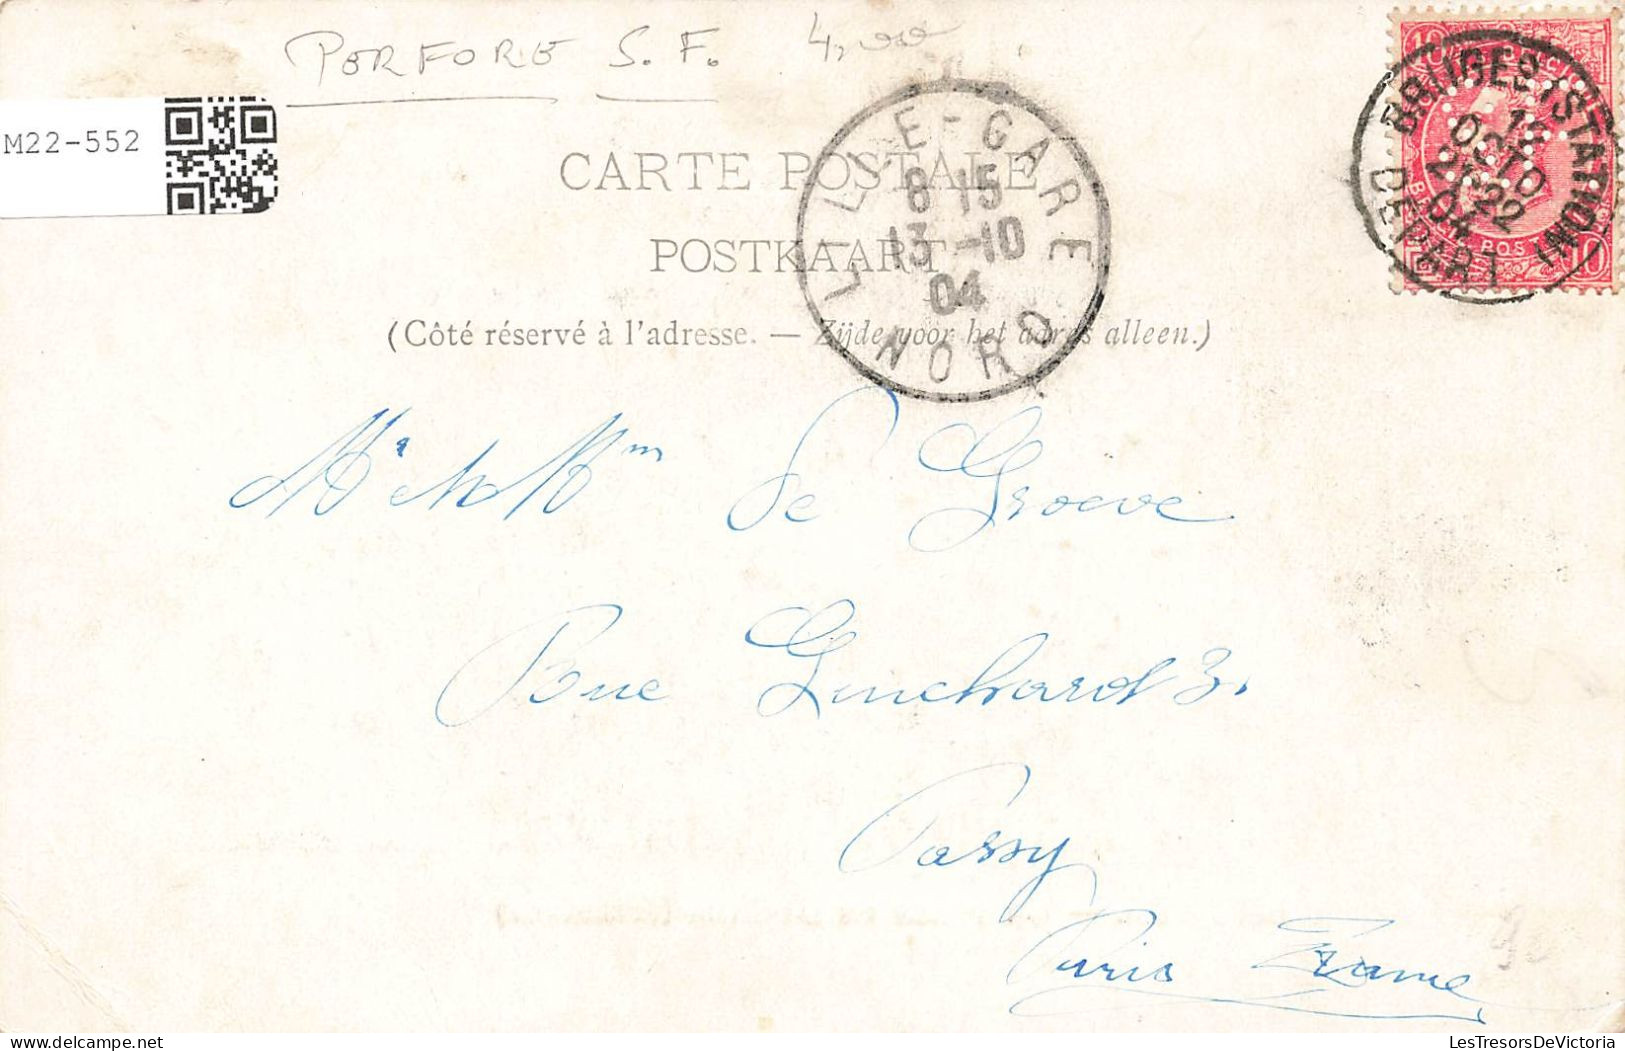 PERFORE S. F. 4,00
M22-552
CARTE POSTALE
POSTKAART
(Côté réservé à l'adresse. — Zijde voor het adres alleen.)
LILLE-GARE
8 15
13-10
04
NORD
10 10
BRUGES (STATION)
12
OCT
22
04
DEPART
Mr et Mme De Groeve
Rue Guichard 3.
Passy
Paris France
LesTresorsDeVictoria